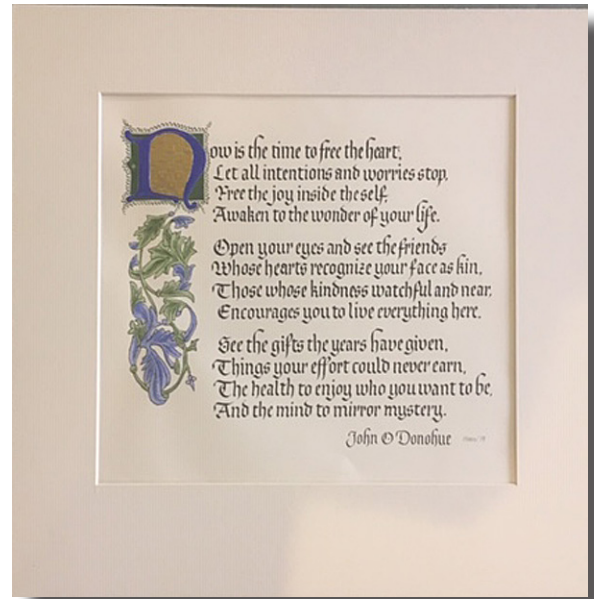 Now is the time to free the heart,
Let all intentions and worries stop,
Free the joy inside the self,
Awaken to the wonder of your life.
Open your eyes and see the friends
Whose hearts recognize your face as kin,
Those whose kindness watchful and near,
Encourages you to live everything here.
See the gifts the years have given,
Things your effort could never earn,
The health to enjoy who you want to be,
And the mind to mirror mystery.
John O Donohue